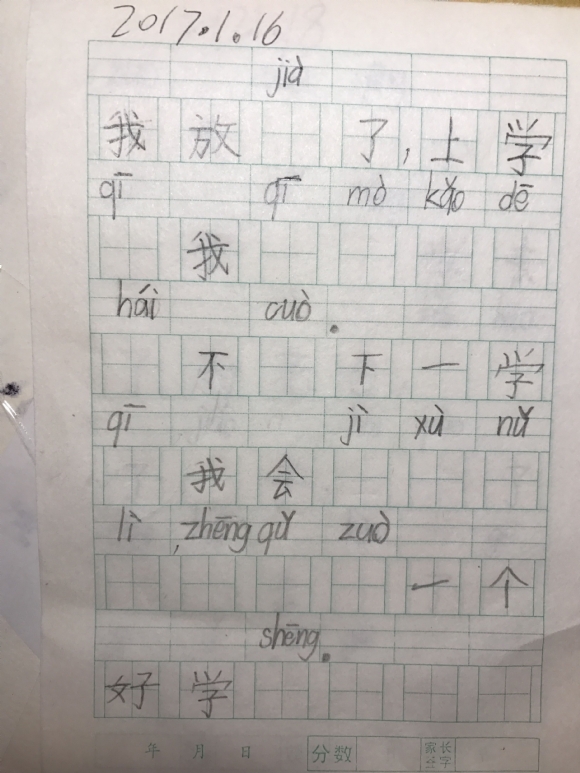 2017.1.16
jià
我放 了,上学
qī qī mò kǎo dē
我
hái cuò.
不 下一学
qī jì xù nǔ
我会
lì,zhēng qǔ zuò
一个
shēng.
好学
年 月 日 分数 家长签字